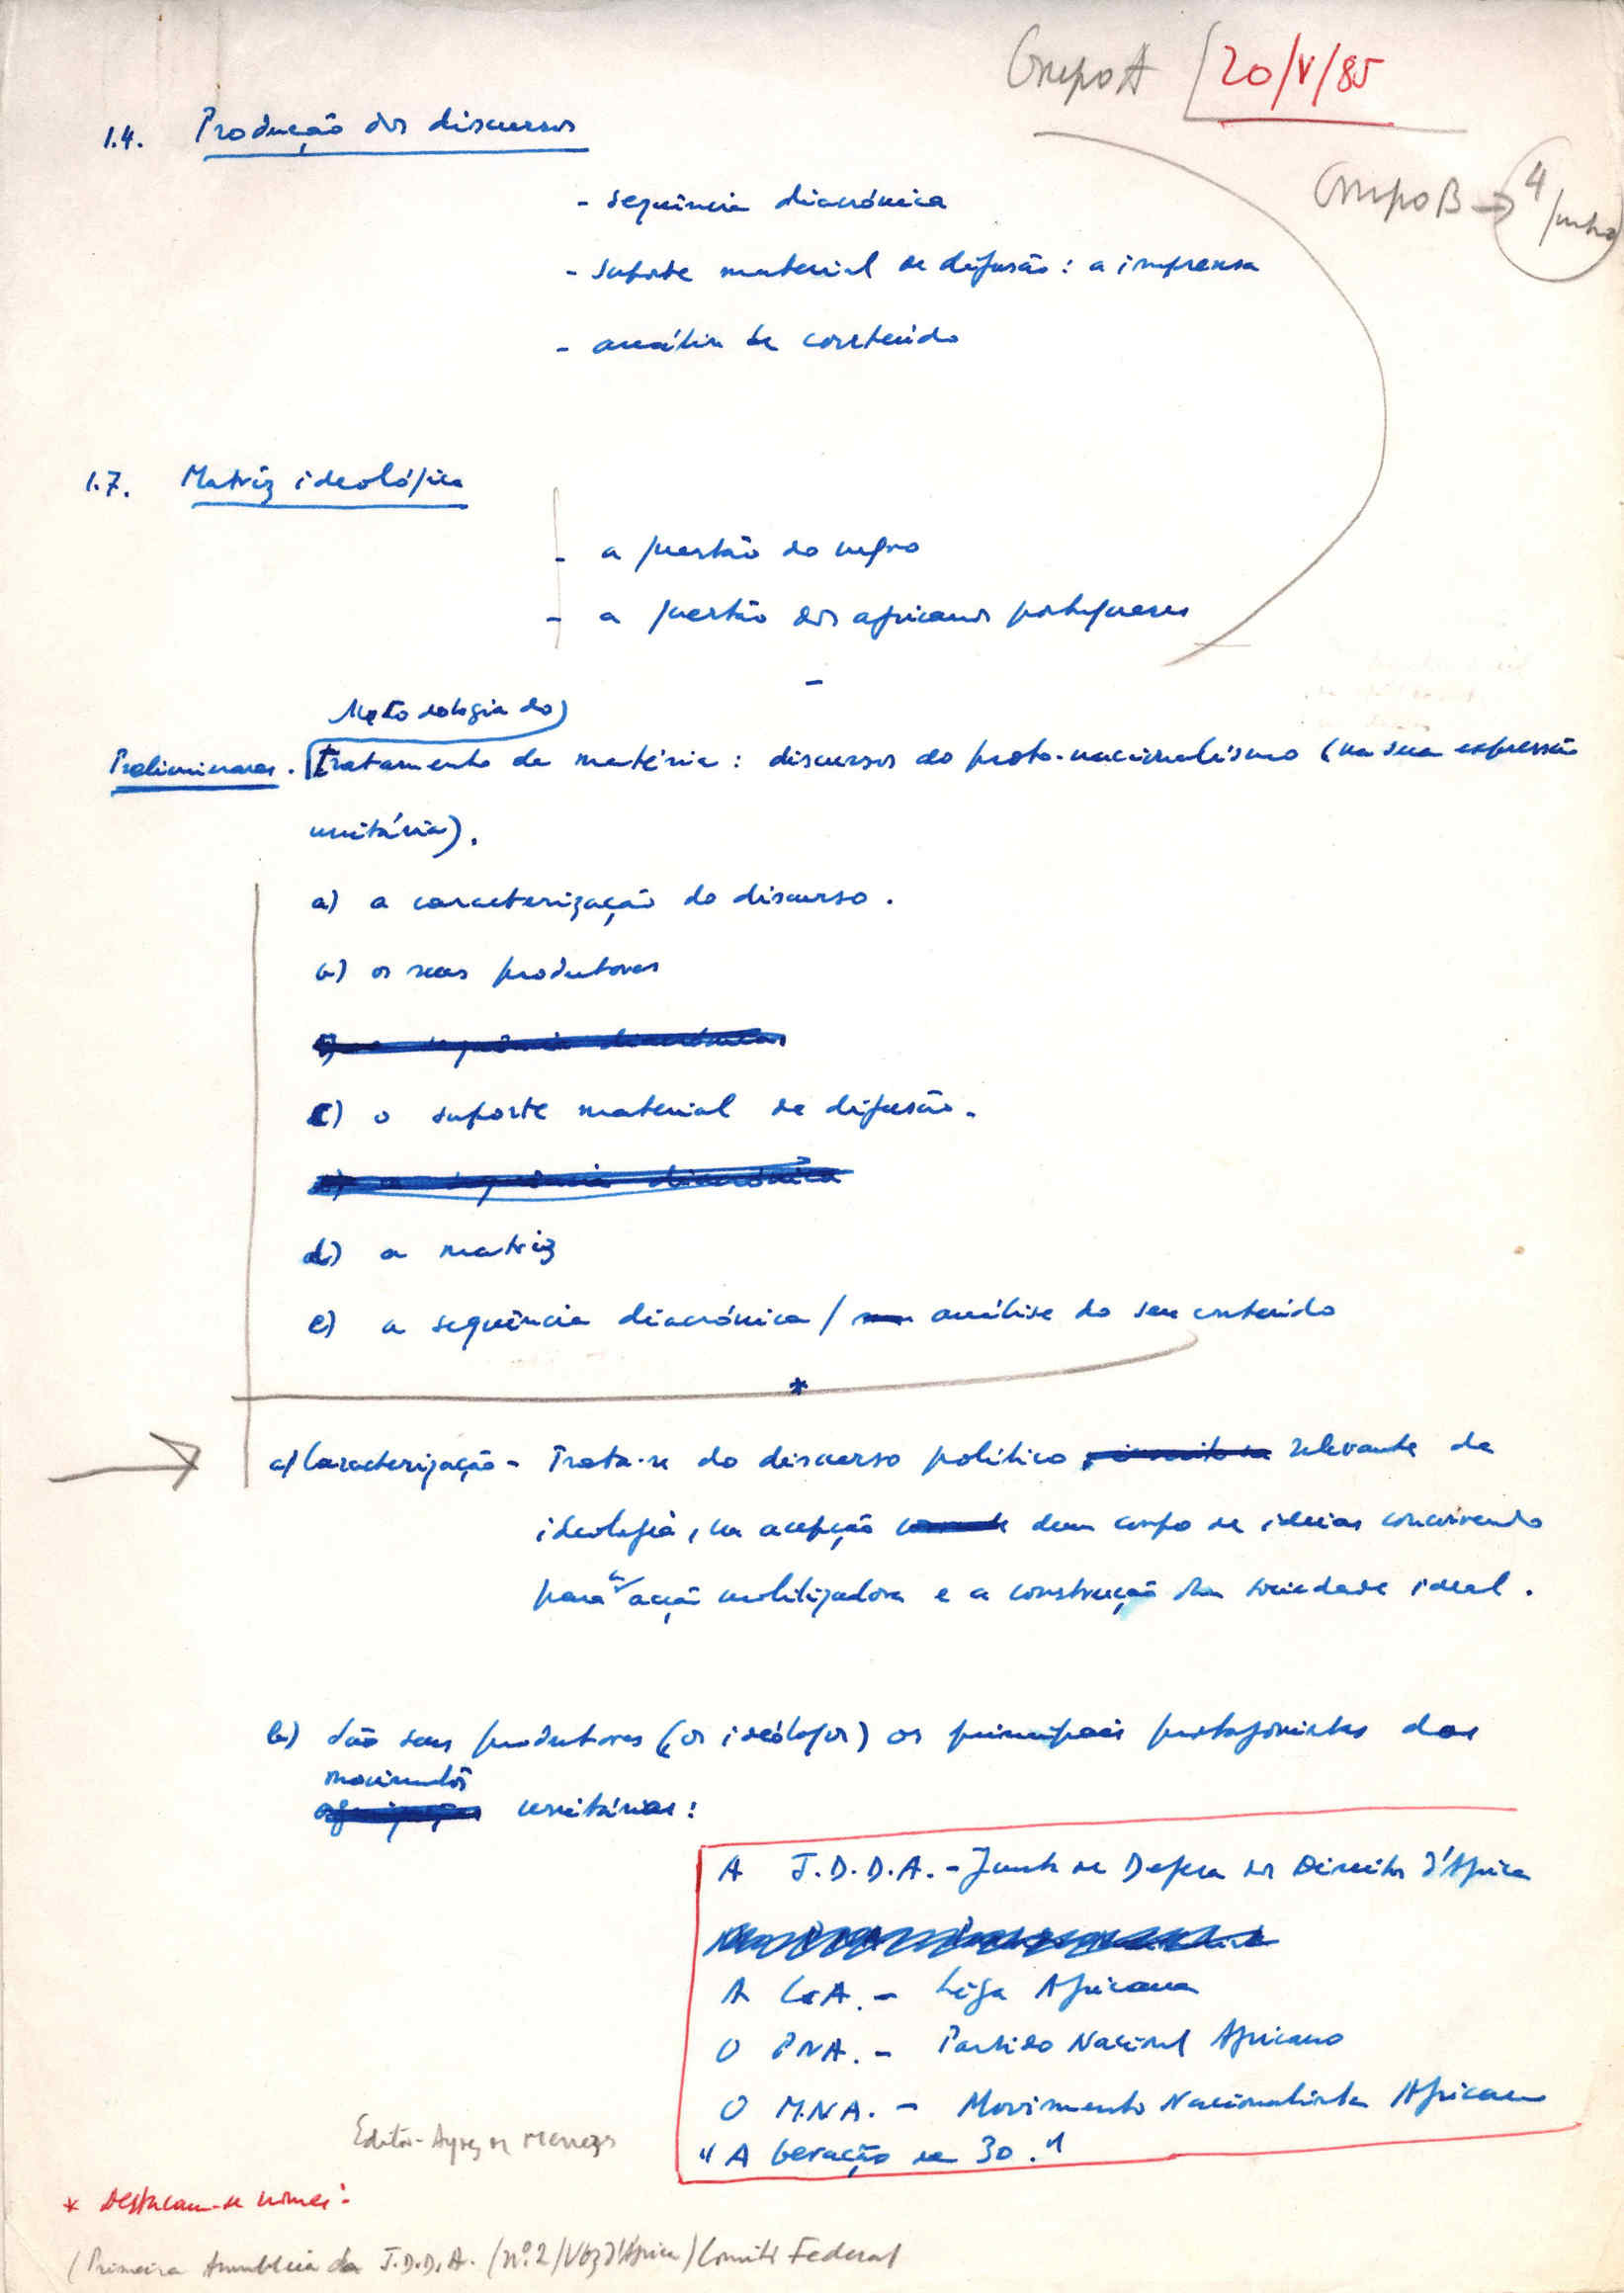 Grupo A [20/V/85
1.4. Produção dos discursos
Grupo B → 4/junho
- sequência diacrónica
- suporte material de difusão: a imprensa
- análise de conteúdo
1.7. Matriz ideológica
- a questão do negro
- a questão dos africanos portugueses
-
Metodologia do
Preliminares. Tratamento da matéria: discursos do proto-nacionalismo (na sua expressão
unitária).
a) a caracterização do discurso.
b) os seus produtores
c) o suporte material de difusão.
d) a matriz
e) a sequência diacrónica / análise do seu conteúdo
*
a) Caracterização - Trata-se do discurso político relevante da
ideologia, na acepção dum corpo de ideias concorrendo
para a acção mobilizadora e a construção duma sociedade ideal.
b) São seus produtores (os ideólogos) os principais protagonistas dos
movimentos
unitários:
A J.D.D.A. - Junta de Defesa dos Direitos d'África
A L.A. - Liga Africana
O PNA. - Partido Nacional Africano
O M.N.A. - Movimento Nacionalista Africano
"A Geração de 30."
Editor - Ayres de Menezes
* Destacam-se nomes:
(Primeira Assembleia da J.D.D.A. (nº 2/Voz d'África) Comité Federal